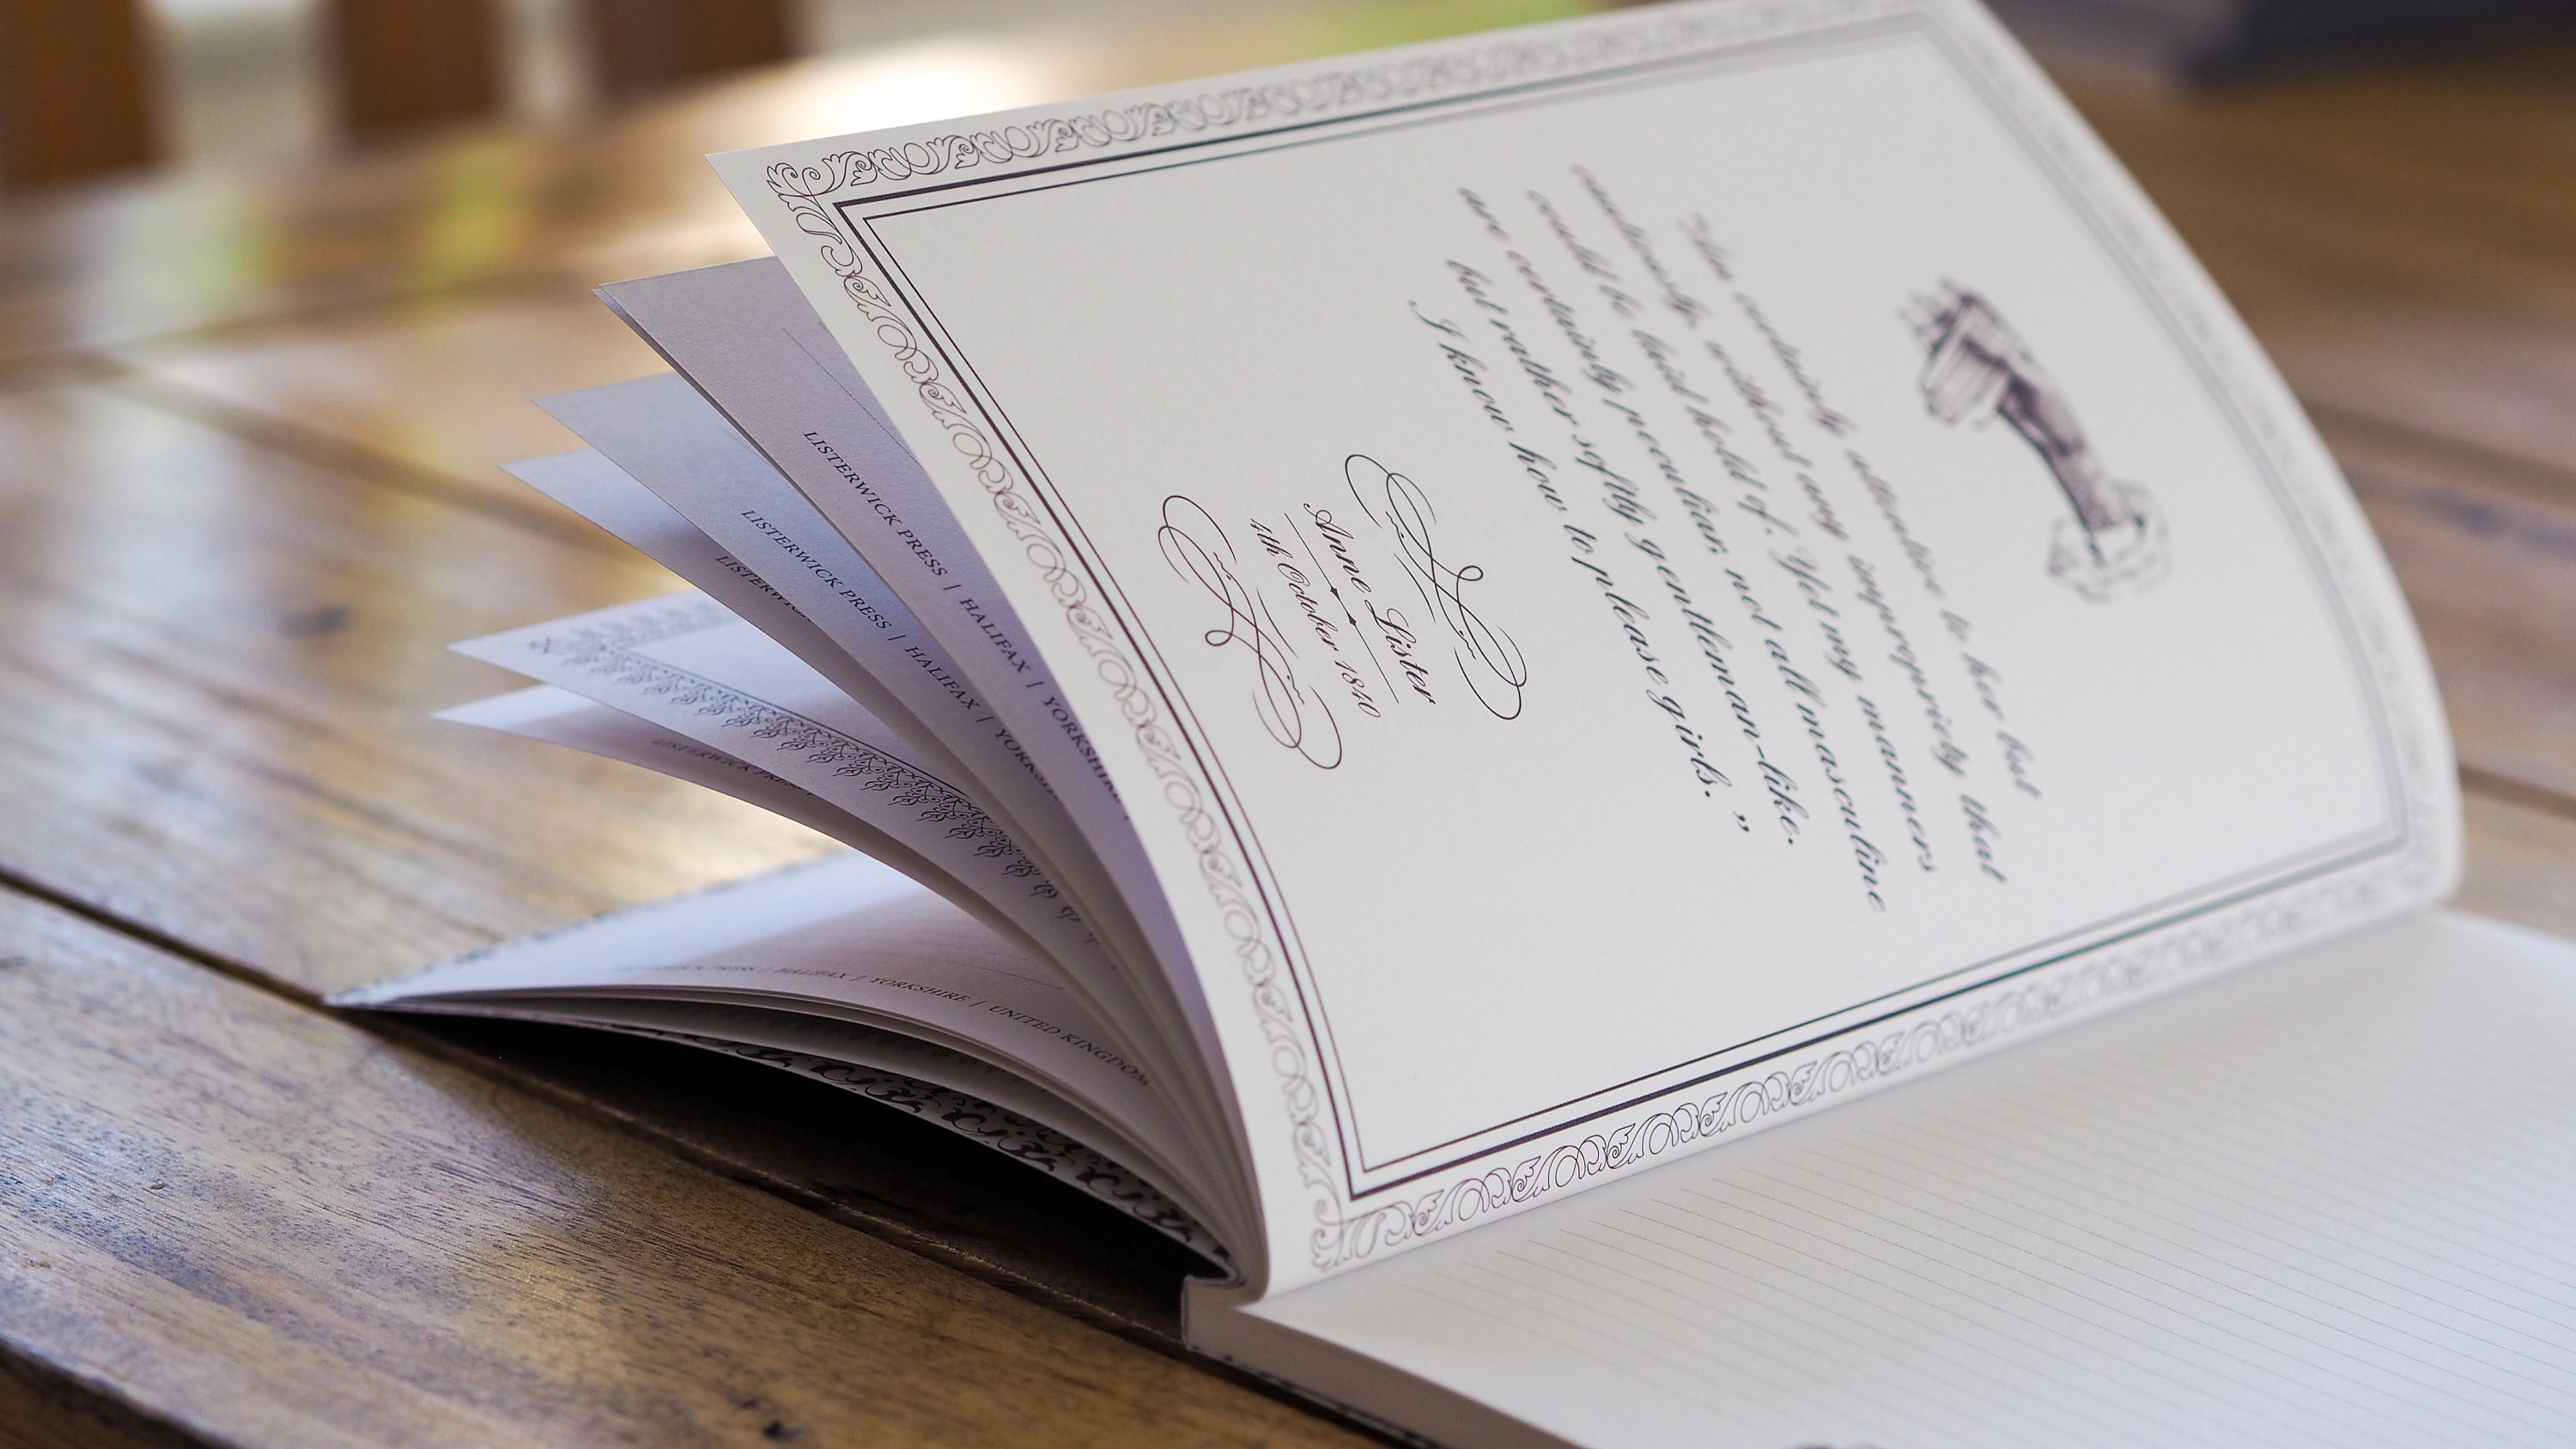 “I am certainly attentive to her but
cautiously, without any impropriety that
could be laid hold of. Yet my manners
are certainly peculiar, not all masculine
but rather softly gentleman-like.
I know how to please girls.”
Anne Lister
4th October 1840
LISTERWICK PRESS | HALIFAX | YORKSHIRE
LISTERWICK PRESS | HALIFAX |
LISTERWICK PRESS
PRESS | HALIFAX | YORKSHIRE | UNITED KINGDOM